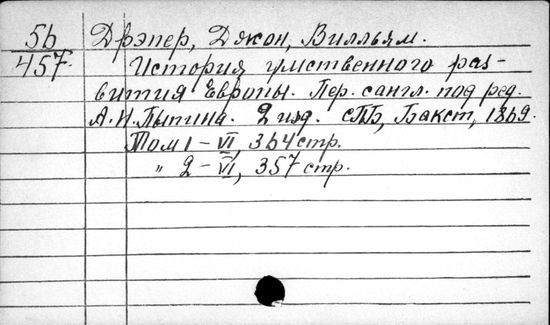 56
457.
Дрэпер, Джон, Вилльям.
История умственного раз-
вития Европы. Пер. с англ. под ред.
А. Н. Пыпина. 2 изд. СПБ, Бакст, 1869.
Том 1 – VI, 364 стр.
" 2 – VI, 357 стр.